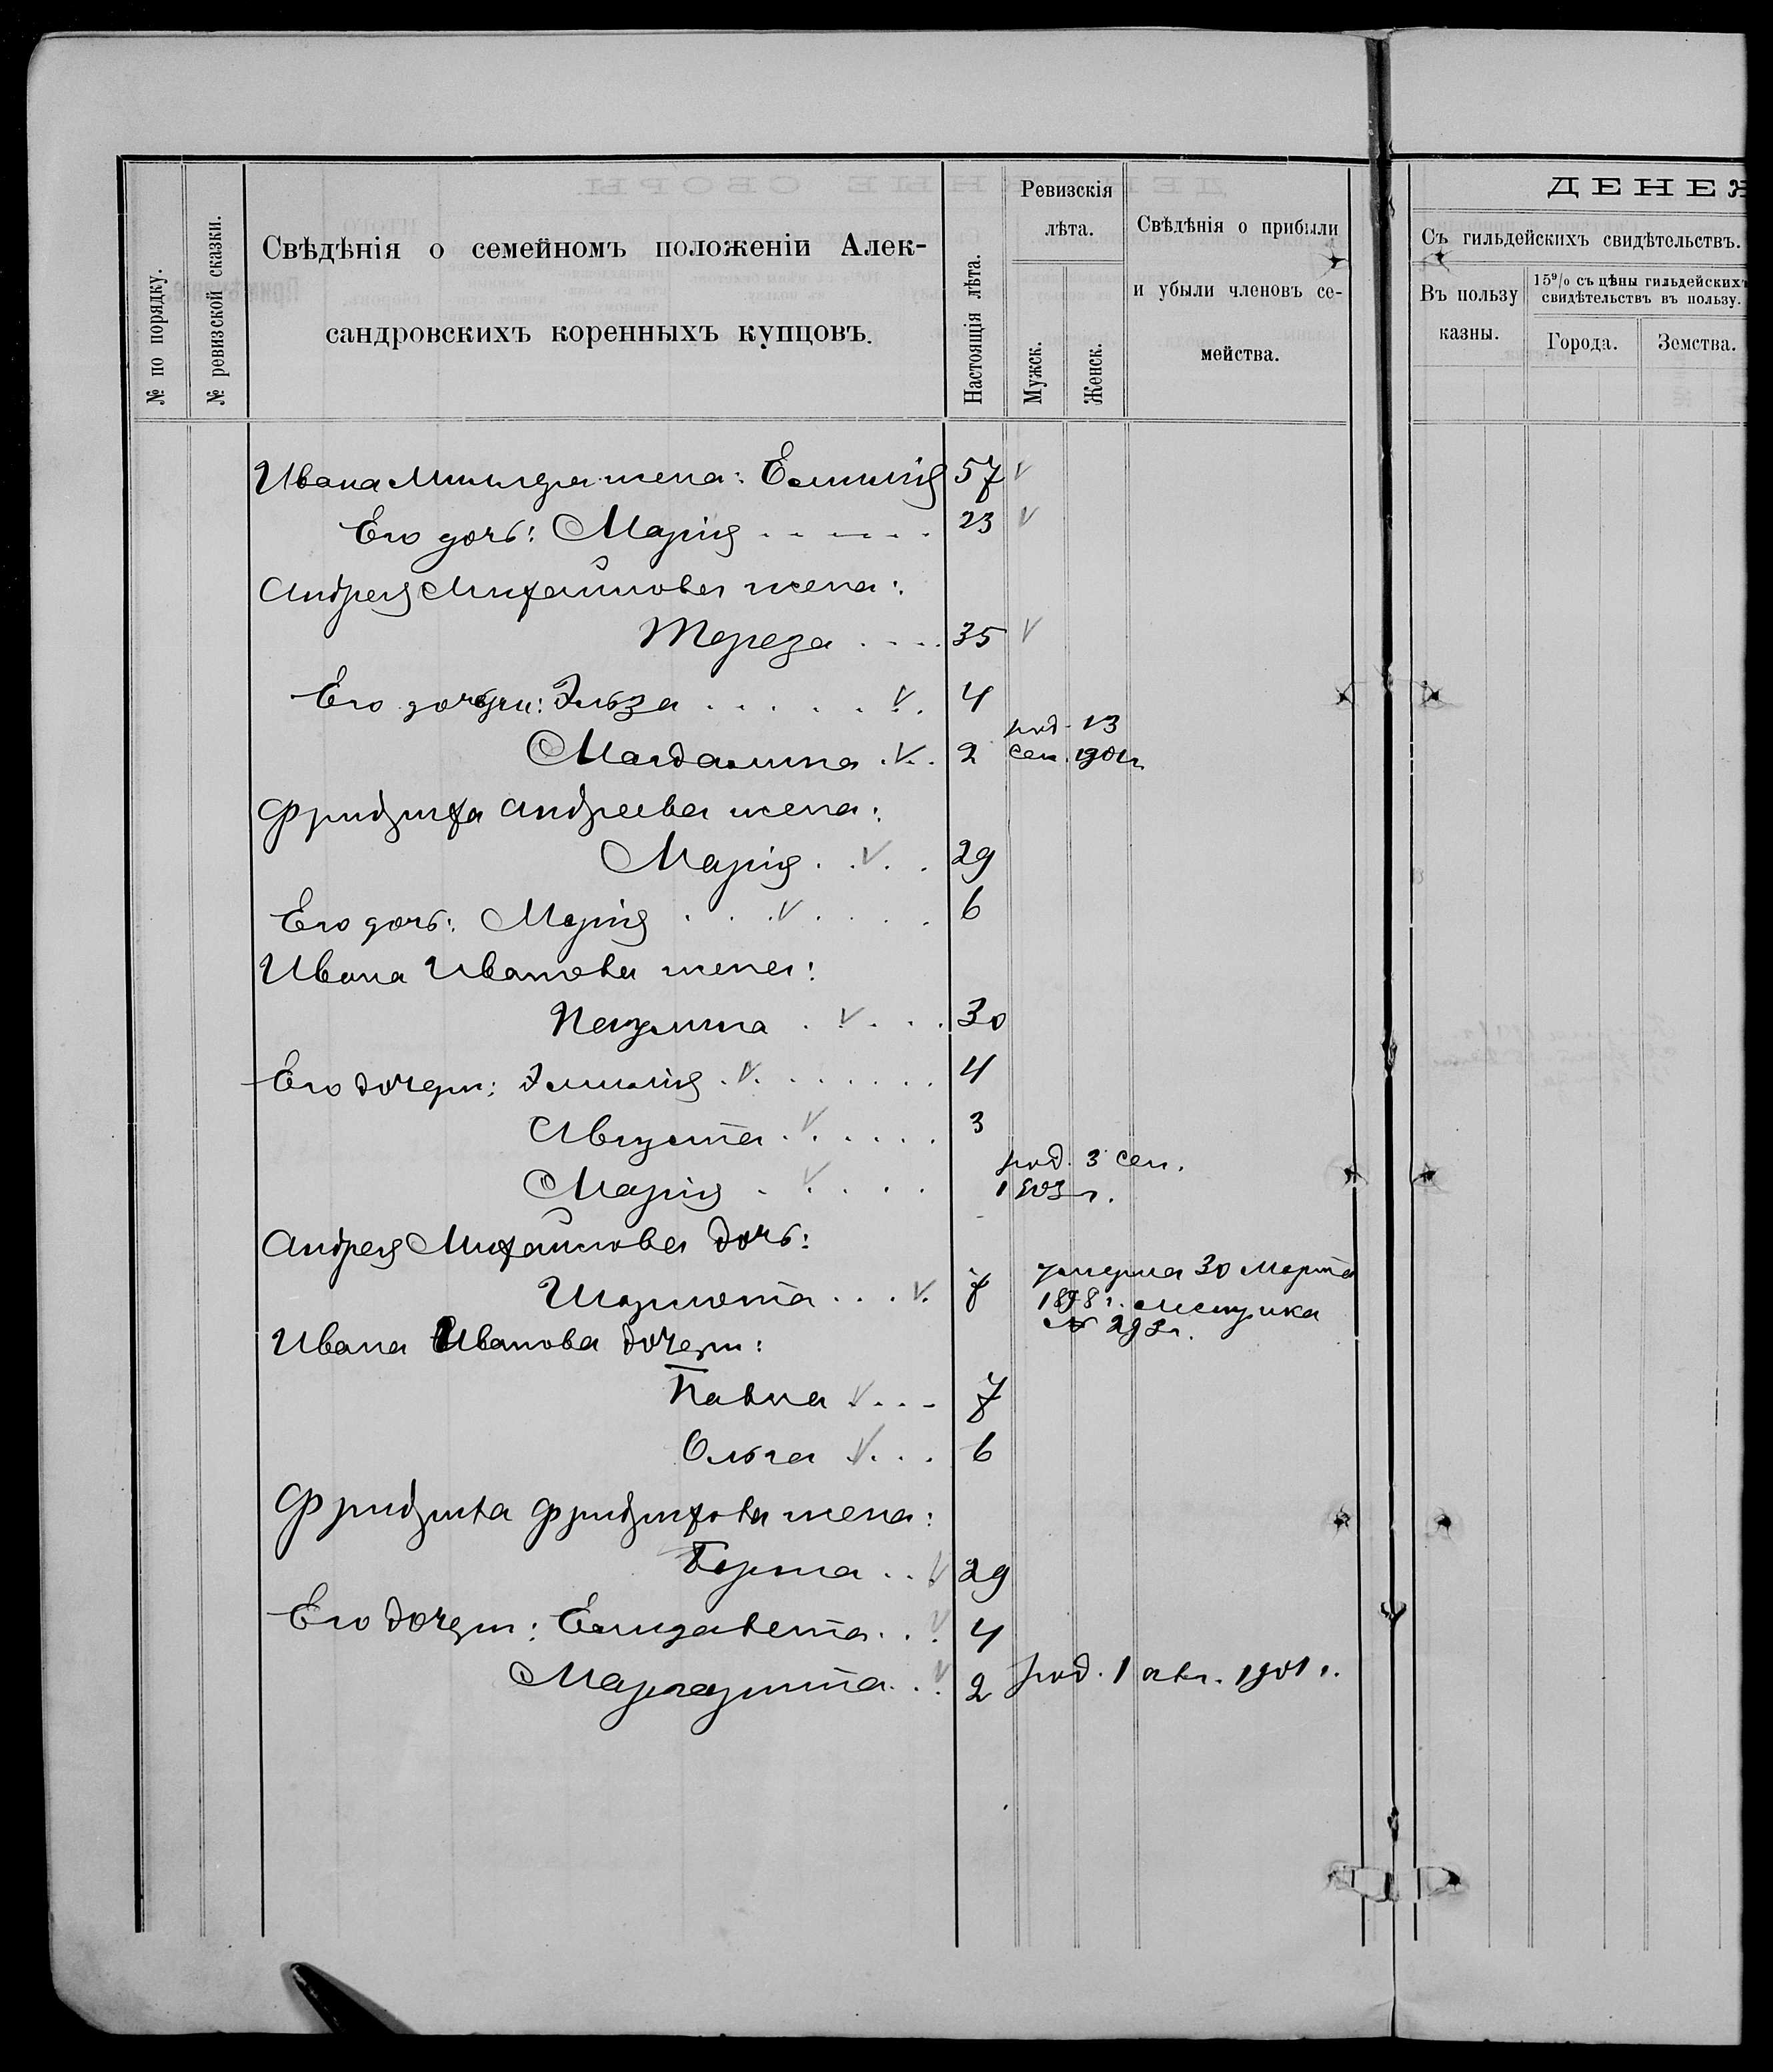 № по порядку.
№ ревизской сказки.
Свѣдѣнія о семейномъ положеніи Алек-
сандровскихъ коренныхъ купцовъ.
Настоящія лѣта.
Ревизскія
лѣта.
Мужск.
Женск.
Свѣдѣнія о прибыли
и убыли членовъ се-
мейства.
ДЕНЕЖ
Съ гильдейскихъ свидѣтельствъ.
Въ пользу
казны.
15% съ цѣны гильдейскихъ
свидѣтельствъ въ пользу.
Города.
Земства.
Ивана жена: Емилія 57 v
Его дочь: Марія 23 v
Андрея Михайлова жена:
Тереза 35 v
Его дочери: Эльза v 4
Магдалина v 2 род. 13
сен. 1901 г.
Фридриха Андреева жена:
Марія v 29
Его дочь: Марія v 6
Ивана Иванова жена:
Паулина v 30
Его дочери: Эмилія v 4
Августа v 3
Марія v род. 3 сен.
1903 г.
Андрея Михайлова дочь:
Шарлота v 7 умерла 30 Марта
1898 г. Метрика
№ 293 г.
Ивана Иванова дочери:
Павла v 7
Ольга v 6
Фридриха Фридрихова жена:
Берта v 29
Его дочери: Елизавета v 4
Маргарита v 2 род. 1 авг. 1901 г.